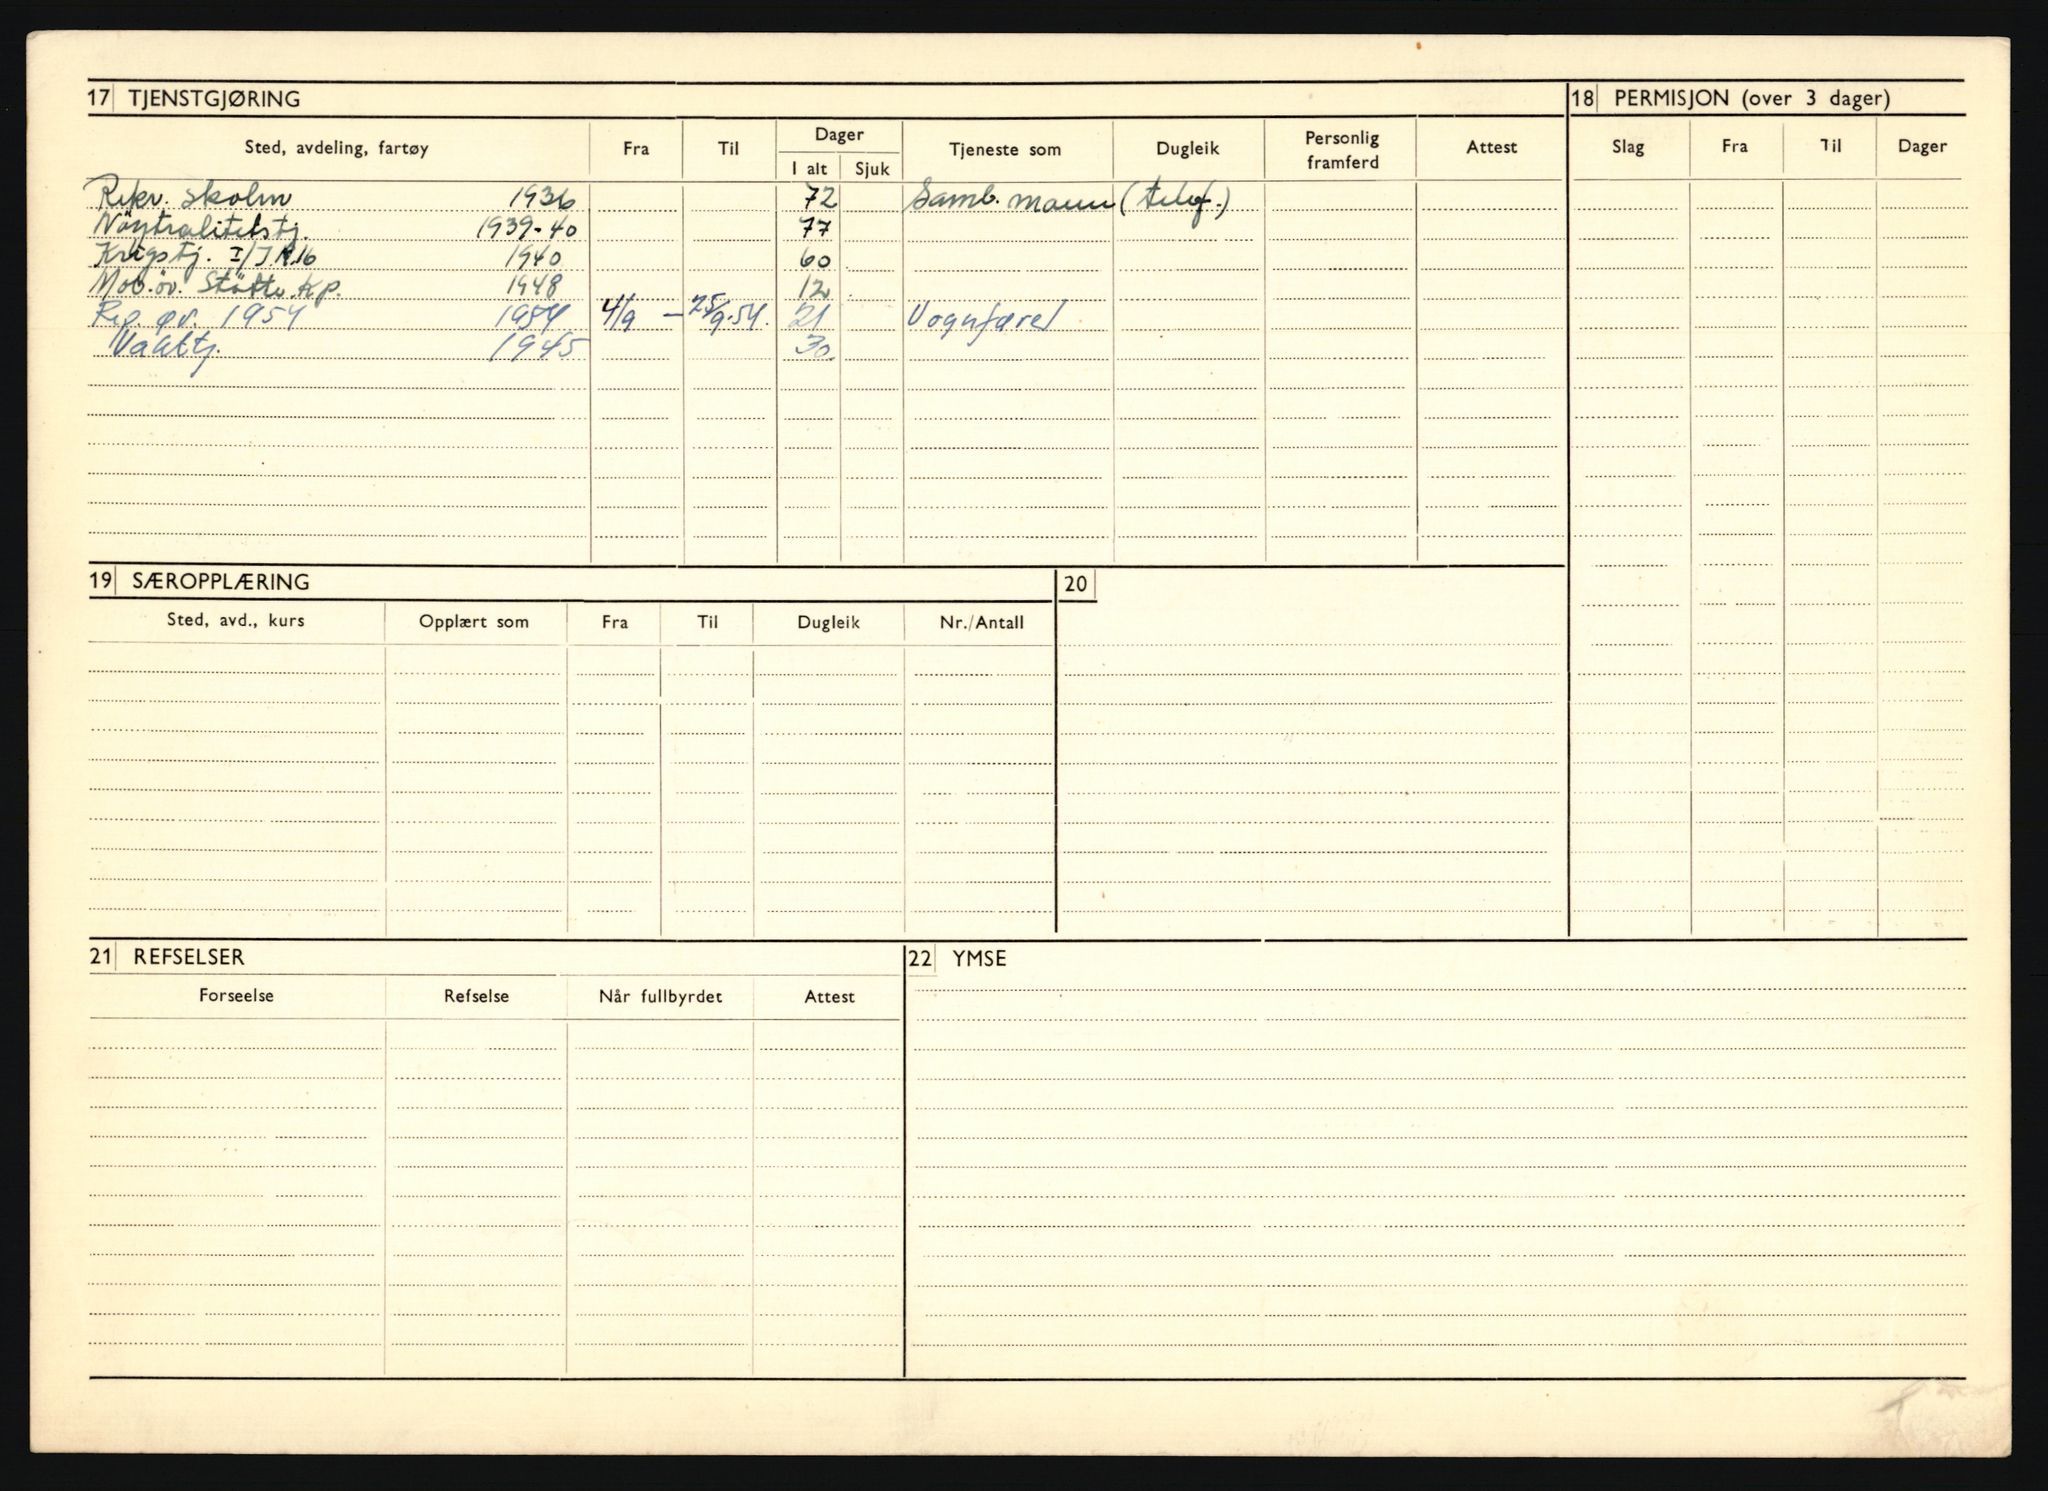 17 TJENSTGJØRING
18 PERMISJON (over 3 dager)
Sted, avdeling, fartøy Fra Til Dager Tjeneste som Dugleik Personlig framferd Attest Slag Fra Til Dager
I alt Sjuk
Rekr. skolen 1936 72 Samb. mann (telef.)
Nöytralitetstj. 1939-40 77
Krigstj. I/J.R.16 1940 60
Mob.öv. Stötte.kp. 1948 12
Rep. øv. 1954 1954 4/9 — 25/9.54. 21 Vognfører
Vakttj. 1945 30
19 SÆROPPLÆRING
20
Sted, avd., kurs Opplært som Fra Til Dugleik Nr./Antall
21 REFSELSER
22 YMSE
Forseelse Refselse Når fullbyrdet Attest